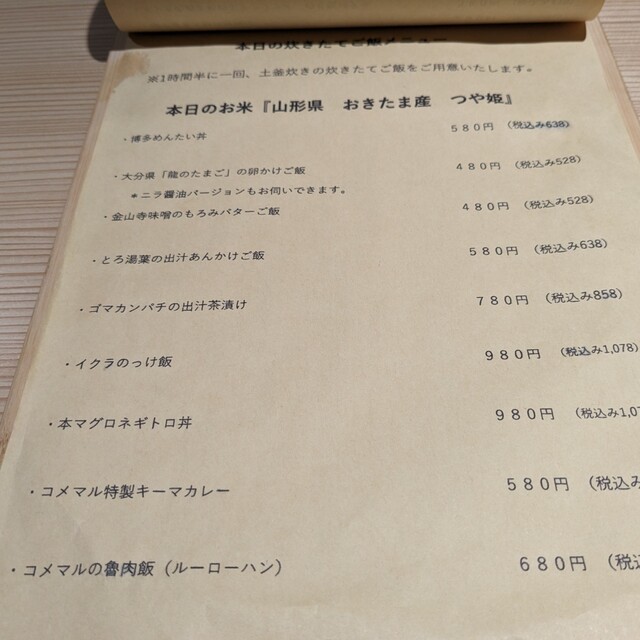 本日の炊きたてご飯メニュー
※1時間半に一回、土釜炊きの炊きたてご飯をご用意いたします。
本日のお米『山形県　おきたま産　つや姫』
・博多めんたい丼　580円　（税込み638）
・大分県「龍のたまご」の卵かけご飯　480円　（税込み528）
＊ニラ醤油バージョンもお伺いできます。
・金山寺味噌のもろみバターご飯　480円　（税込み528）
・とろ湯葉の出汁あんかけご飯　580円　（税込み638）
・ゴマカンパチの出汁茶漬け　780円　（税込み858）
・イクラのっけ飯　980円　（税込み1,078）
・本マグロネギトロ丼　980円　（税込み1,07
・コメマル特製キーマカレー　580円　（税込み
・コメマルの魯肉飯（ルーローハン）　680円　（税込